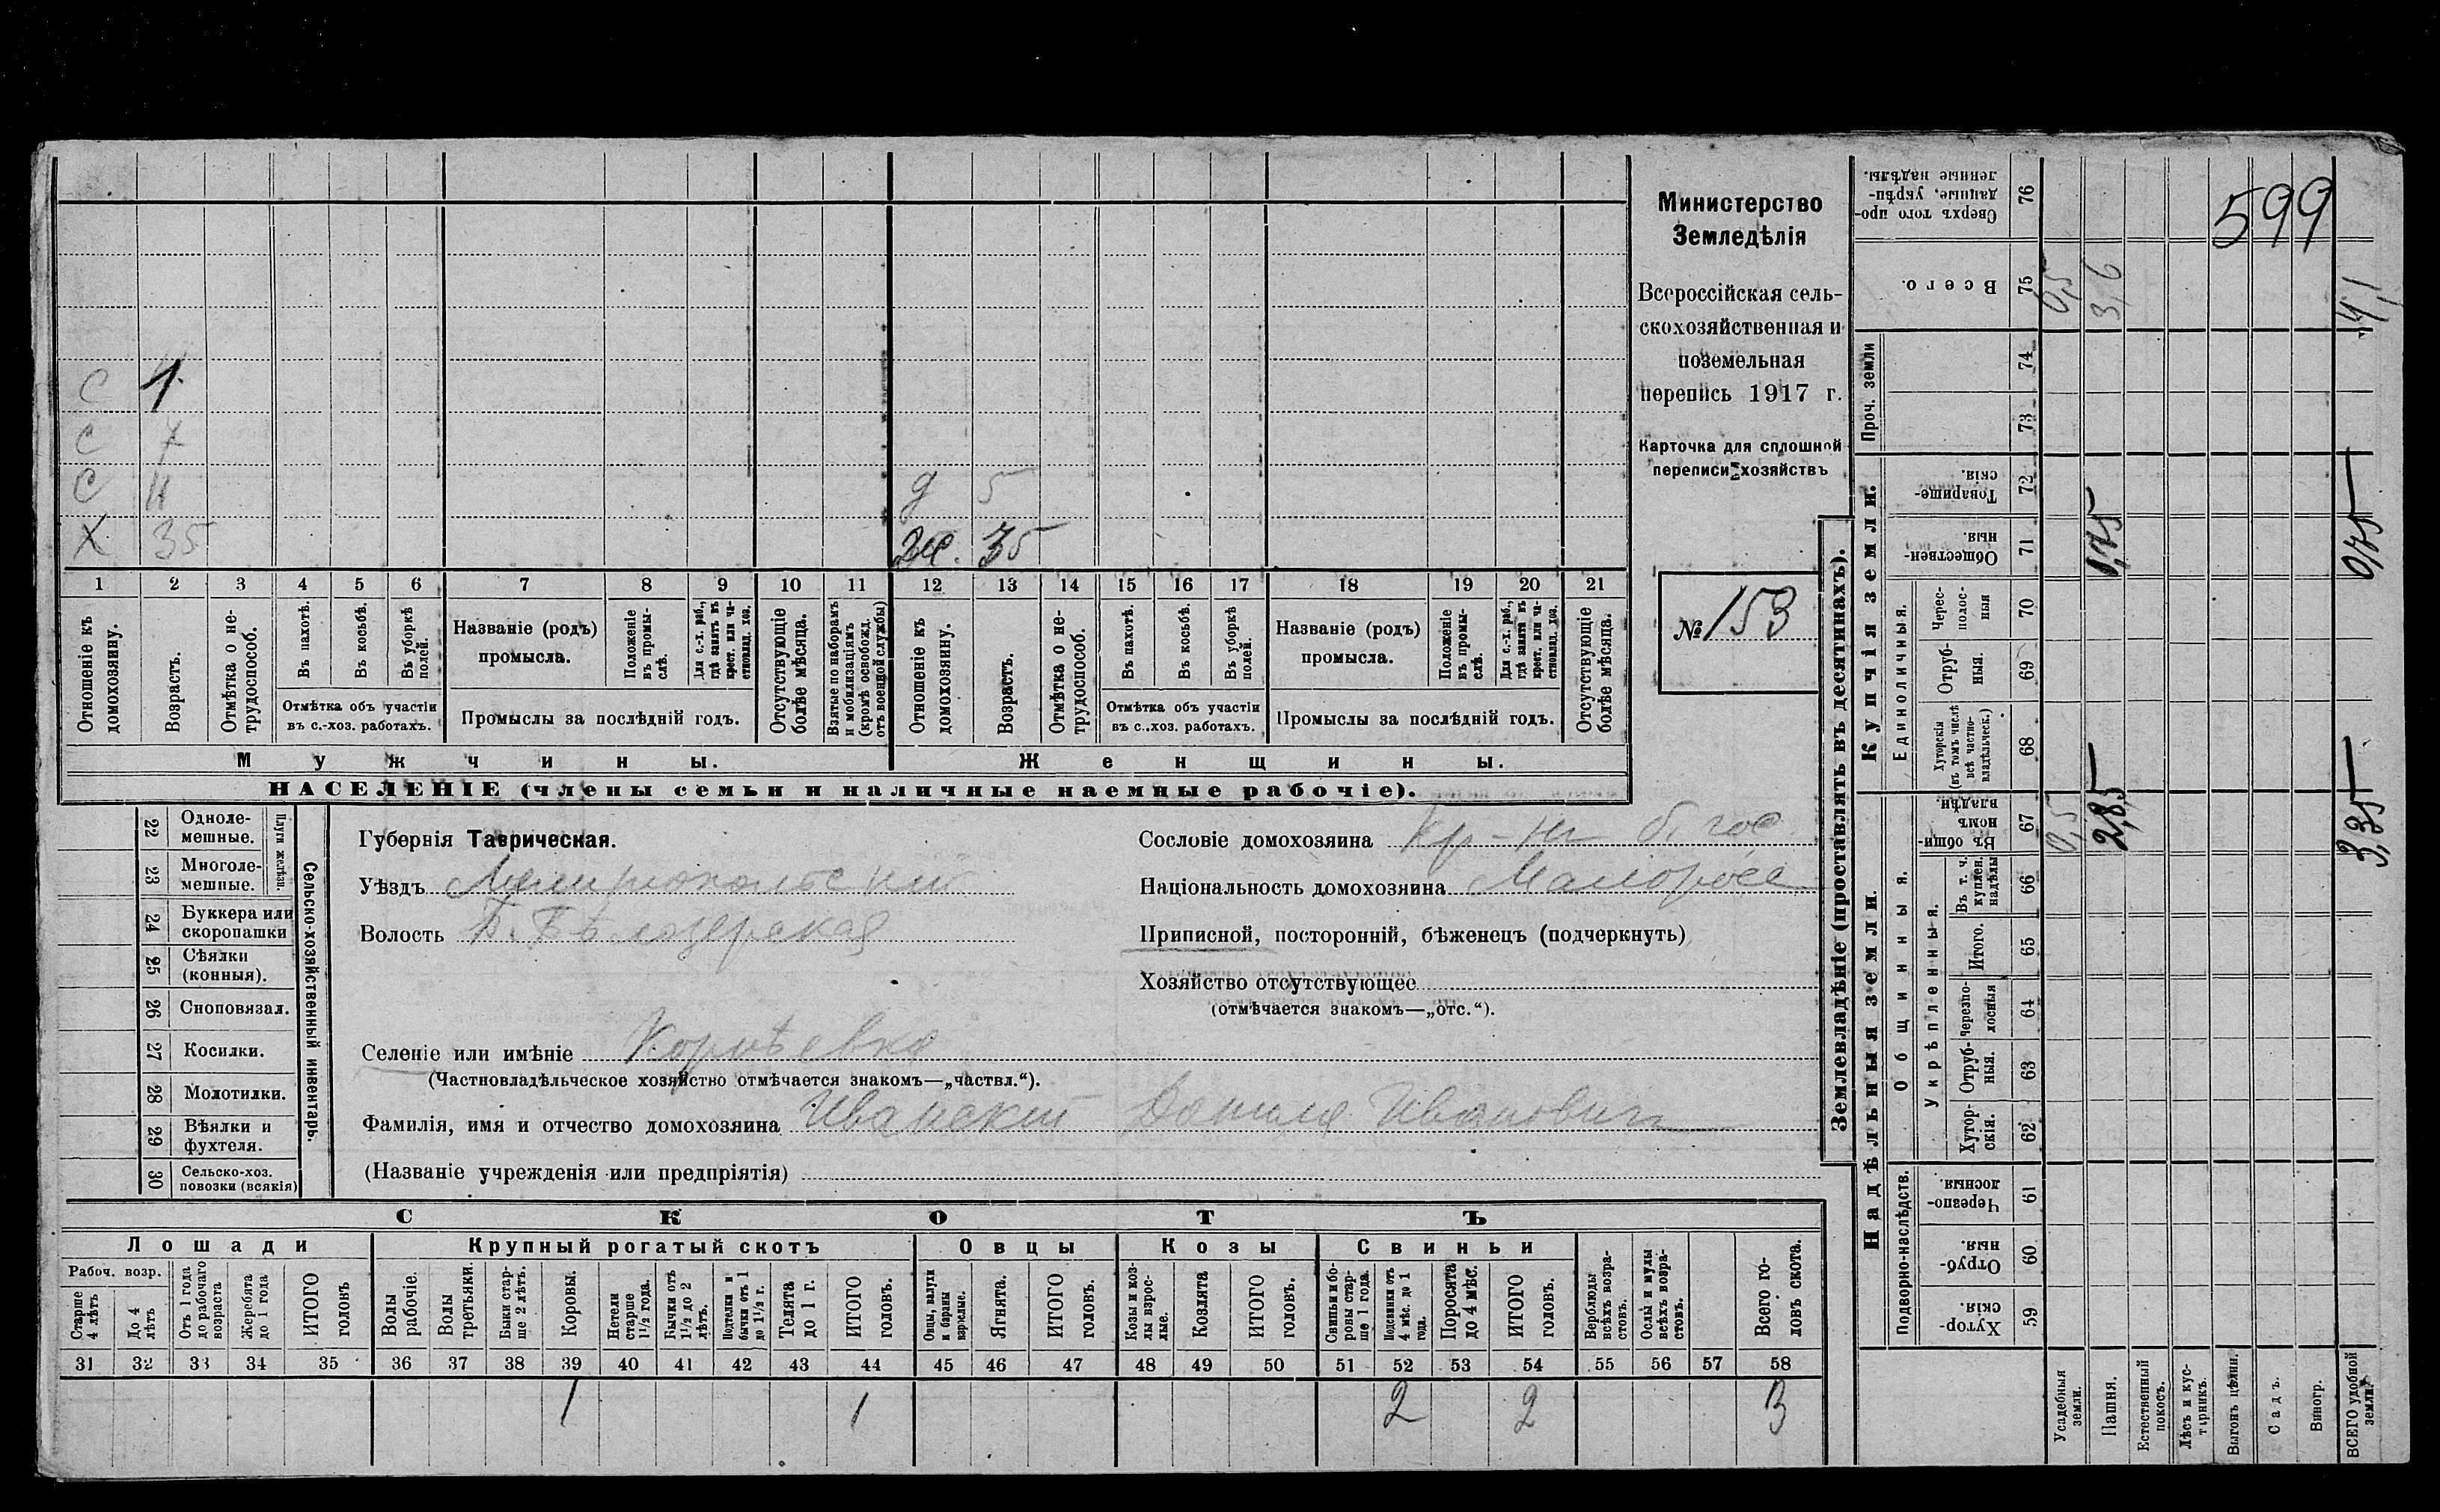 599
Министерство
Земледѣлія
Всероссійская сель-
скохозяйственная и
поземельная
перепись 1917 г.
Карточка для сплошной
переписи хозяйствъ
№ 153
С 1
С 7
С 11
Х 35
д 5
ж. 35
1 2 3 4 5 6 7 8 9 10 11 12 13 14 15 16 17 18 19 20 21
Отношеніе къ домохозяину.
Возрастъ.
Отмѣтка о не-трудоспособ.
Въ пахотѣ.
Въ косьбѣ.
Въ уборкѣ полей.
Отмѣтка объ участіи
въ с.-хоз. работахъ.
Названіе (родъ)
промысла.
Положеніе въ промы-слѣ.
Для с.-х. раб., гдѣ занятъ въ крест. или ча-стновлад. хоз.
Промыслы за послѣдній годъ.
Отсутствующіе болѣе мѣсяца.
Взятые по наборамъ и мобилизаціямъ (кромѣ освобожд. отъ военной службы)
Отношеніе къ домохозяину.
Возрастъ.
Отмѣтка о не-трудоспособ.
Въ пахотѣ.
Въ косьбѣ.
Въ уборкѣ полей.
Отмѣтка объ участіи
въ с.-хоз. работахъ.
Названіе (родъ)
промысла.
Положеніе въ промы-слѣ.
Для с.-х. раб., гдѣ занята въ крест. или ча-стновлад. хоз.
Промыслы за послѣдній годъ.
Отсутствующіе болѣе мѣсяца.
Мужчины.
Женщины.
НАСЕЛЕНІЕ (члены семьи и наличные наемные рабочіе).
Сельско-хозяйственный инвентарь.
Плуги желѣзн.
22 Одноле-мешные.
23 Многоле-мешные.
24 Буккера или скоропашки
25 Сѣялки (конныя).
26 Сноповязал.
27 Косилки.
28 Молотилки.
29 Вѣялки и фухтеля.
30 Сельско-хоз. повозки (всякія)
Губернія Таврическая.
Уѣздъ Мелитопольскій
Волость Б. Бѣлозерская
Селеніе или имѣніе
(Частновладѣльческое хозяйство отмѣчается знакомъ—„частвл.“).
Фамилія, имя и отчество домохозяина Иванскій Данило Ивановичъ
(Названіе учрежденія или предпріятія)
Сословіе домохозяина Кр-нъ б. гос.
Національность домохозяина Малоросс
Приписной, посторонній, бѣженецъ (подчеркнуть)
Хозяйство отсутствующее
(отмѣчается знакомъ—„отс.“).
СКОТЪ
Лошади
Крупный рогатый скотъ
Овцы
Козы
Свиньи
Рабоч. возр.
Старше 4 лѣтъ
До 4 лѣтъ
Отъ 1 года до рабочаго возраста
Жеребята до 1 года
ИТОГО головъ
Волы рабочіе.
Волы третьяки.
Быки стар-ше 2 лѣтъ.
Коровы.
Нетели старше 1½ года.
Бычки отъ 1½ до 2 лѣтъ.
Подтелки и бычки отъ 1 до 1½ г.
Телята до 1 г.
ИТОГО головъ.
Овцы, валухи и бараны взрослые.
Ягнята.
ИТОГО головъ.
Козы и коз-лы взрос-лые.
Козлята
ИТОГО головъ.
Свиньи и бо-ровы стар-ше 1 года.
Подсвинки отъ 4 мѣс. до 1 года.
Поросята до 4 мѣс.
ИТОГО головъ.
Верблюды всѣхъ возра-стовъ.
Ослы и мулы всѣхъ возра-стовъ.
Всего го-ловъ скота.
31 32 33 34 35 36 37 38 39 40 41 42 43 44 45 46 47 48 49 50 51 52 53 54 55 56 57 58
1 1 2 2 3
Землевладѣніе (проставлять въ десятинахъ).
Надѣльныя земли.
Купчія земли.
Проч. земли
Подворно-наслѣдств.
Общинныя.
Укрѣпленныя.
Единоличныя.
59 Хутор-скія.
60 Отруб-ныя.
61 Черезпо-лосныя.
62 Хутор-скія.
63 Отруб-ныя.
64 Черезпо-лосныя
65 Итого.
66 Въ т. ч. куплен. надѣлы
67 Въ общин-номъ владѣн.
68 Хуторскія (въ томъ числѣ всѣ частно-владѣльческ.)
69 Отруб-ныя.
70 Черес-полос-ныя
71 Обществен-ныя.
72 Товарище-скія.
73
74
75 Всего.
76 Сверхъ того про-данные, укрѣп-ленные надѣлы.
Усадебныя земли. 0,5 0,5
Пашня. 2,85 0,75 3,6
Естественный покосъ.
Лѣсъ и кус-тарникъ.
Выгонъ цѣлин.
Садъ.
Виногр.
ВСЕГО удобной земли. 3,35 0,75 4,1